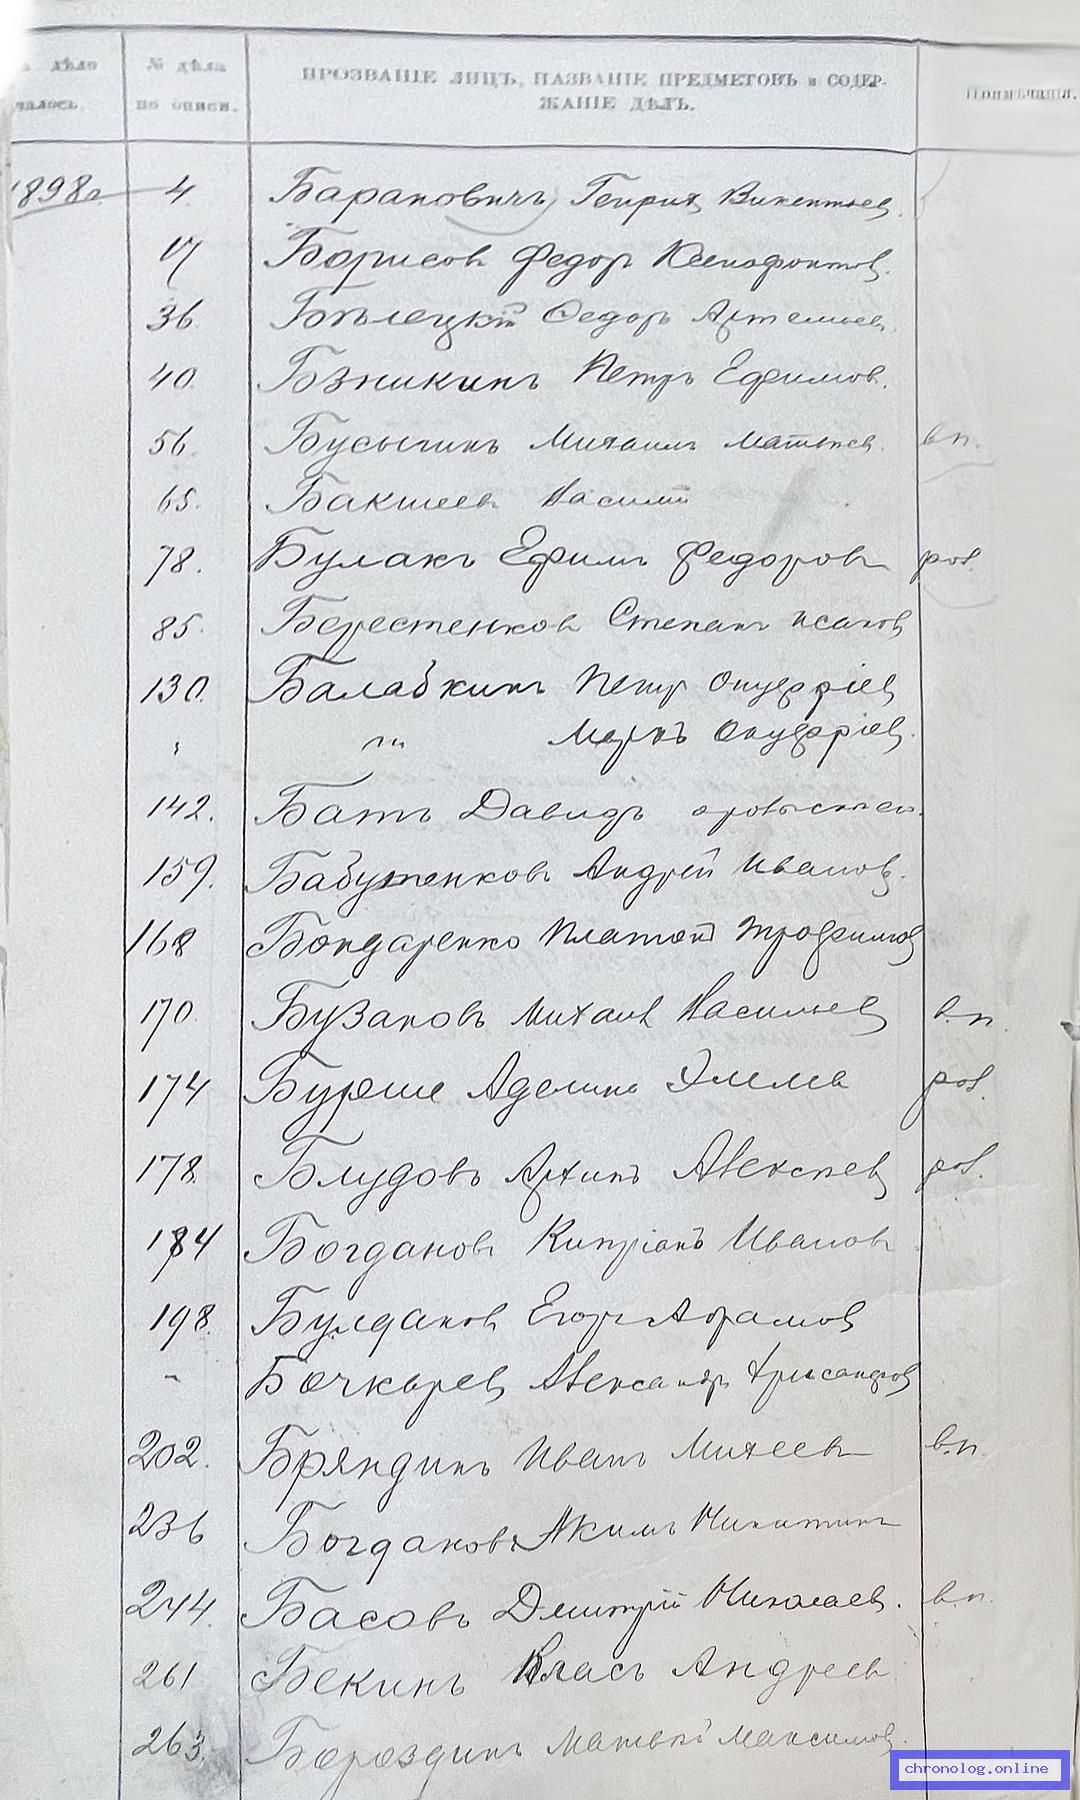 дѣло № дѣла ПРОЗВАНІЕ ЛИЦЪ, НАЗВАНІЕ ПРЕДМЕТОВЪ и СОДЕР- Примѣчанія.
чалось. по описи. ЖАНІЕ ДѢЛЪ.
1898г. 4 Барановичъ Генрих Викентьев.
17 Борисов Федор Ксенофонтов.
36. Бѣлецкій Федоръ Артемьев.
40. Бзникинъ Петръ Ефимов.
56. Бусыгинъ Михаилъ Матвѣев. вп.
65. Бакшеев Василій
78. Булакъ Ефимъ Федоров роз.
85. Берестенков Степанъ Исаков
130. Балабкинъ Петр Онуфріев
" " Маркъ Онуфріев.
142. Батъ Давидъ
159. Бабушенковъ Андрей Иванов.
168 Бондаренко Платон Трофимов
170. Бузановъ Михаил Васильев в.п.
174 Буреше Аделина Эмма роз.
178. Блудовъ Архипъ Алексѣев роз.
184 Богданов Кипріанъ Иванов
198. Булдаков Егоръ Абрамов
" Бочкарев Александръ Хрисанфов
202. Бряндинъ Иванъ Михеев в.п.
236 Богданов Акимъ Никитинъ
244. Басовъ Дмитрій Николаев. в.п.
261 Бекинъ Власъ Андреев
263. Бороздинъ Матвей Максимов.
chronolog.online